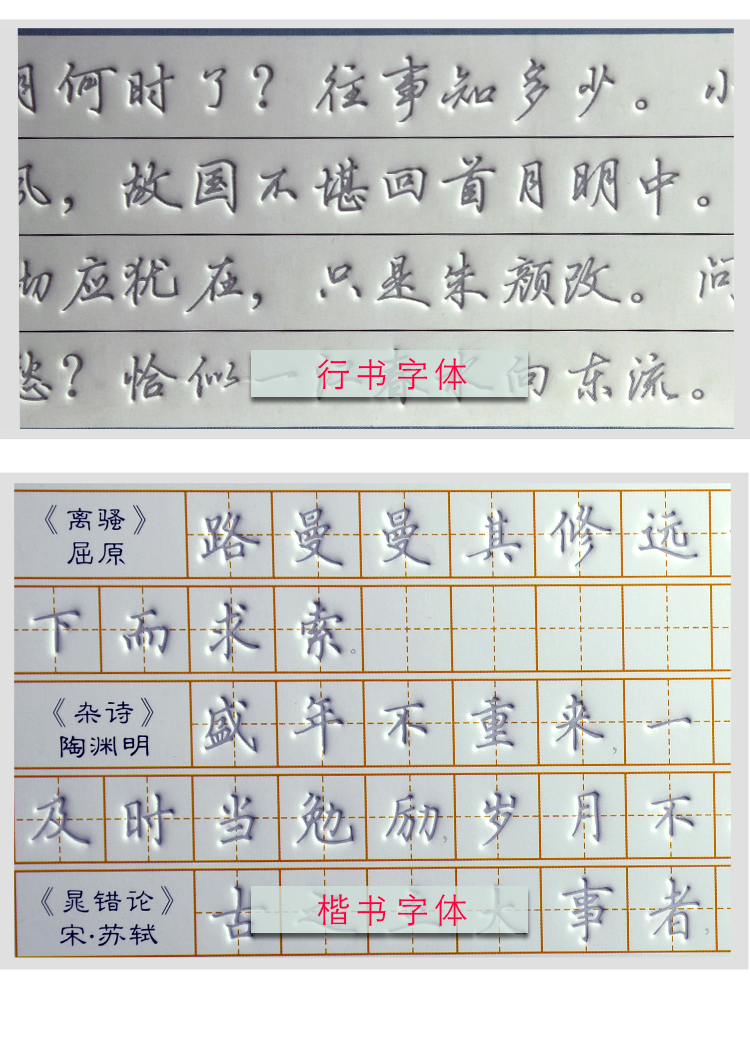 月何时了？往事知多少。小
风，故国不堪回首月明中。
砌应犹在，只是朱颜改。问
愁？恰似一江春水向东流。
行书字体
《离骚》
屈原
路曼曼其修远
下而求索。
《杂诗》
陶渊明
盛年不重来，一
及时当勉励，岁月不
《晁错论》
宋·苏轼
古之立大事者，
楷书字体